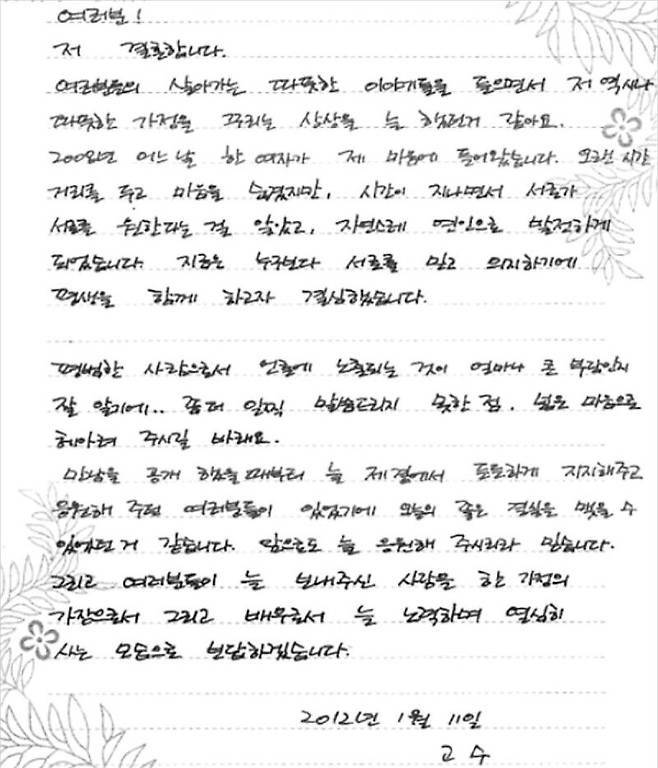 여러분!
저 결혼합니다.
여러분들의 살아가는 따뜻한 이야기들을 들으면서 저 역시나
따뜻한 가정을 꾸리는 상상을 늘 했던거 같아요.
2008년 어느 날 한 여자가 제 마음에 들어왔습니다. 오랜 시간
거리를 두고 마음을 숨겼지만, 시간이 지나면서 서로가
서로를 원한다는 걸 알았고, 자연스레 연인으로 발전하게
되었습니다. 지금은 누구보다 서로를 믿고 의지하기에
평생을 함께 하고자 결심했습니다.
평범한 사람으로서 언론에 노출되는 것이 얼마나 큰 부담인지
잘 알기에.. 좀더 일찍 말씀드리지 못한 점, 넓은 마음으로
헤아려 주시길 바래요.
만남을 공개 했을때부터 늘 제 곁에서 든든하게 지지해주고
응원해 주던 여러분들이 있었기에 오늘의 좋은 결실을 맺을 수
있었던거 같습니다. 앞으로도 늘 응원해 주시리라 믿습니다.
그리고 여러분들이 늘 보내주신 사랑을 한 가정의
가장으로서 그리고 배우로서 늘 노력하며 열심히
사는 모습으로 보답하겠습니다.
2012년 1월 11일
고 수